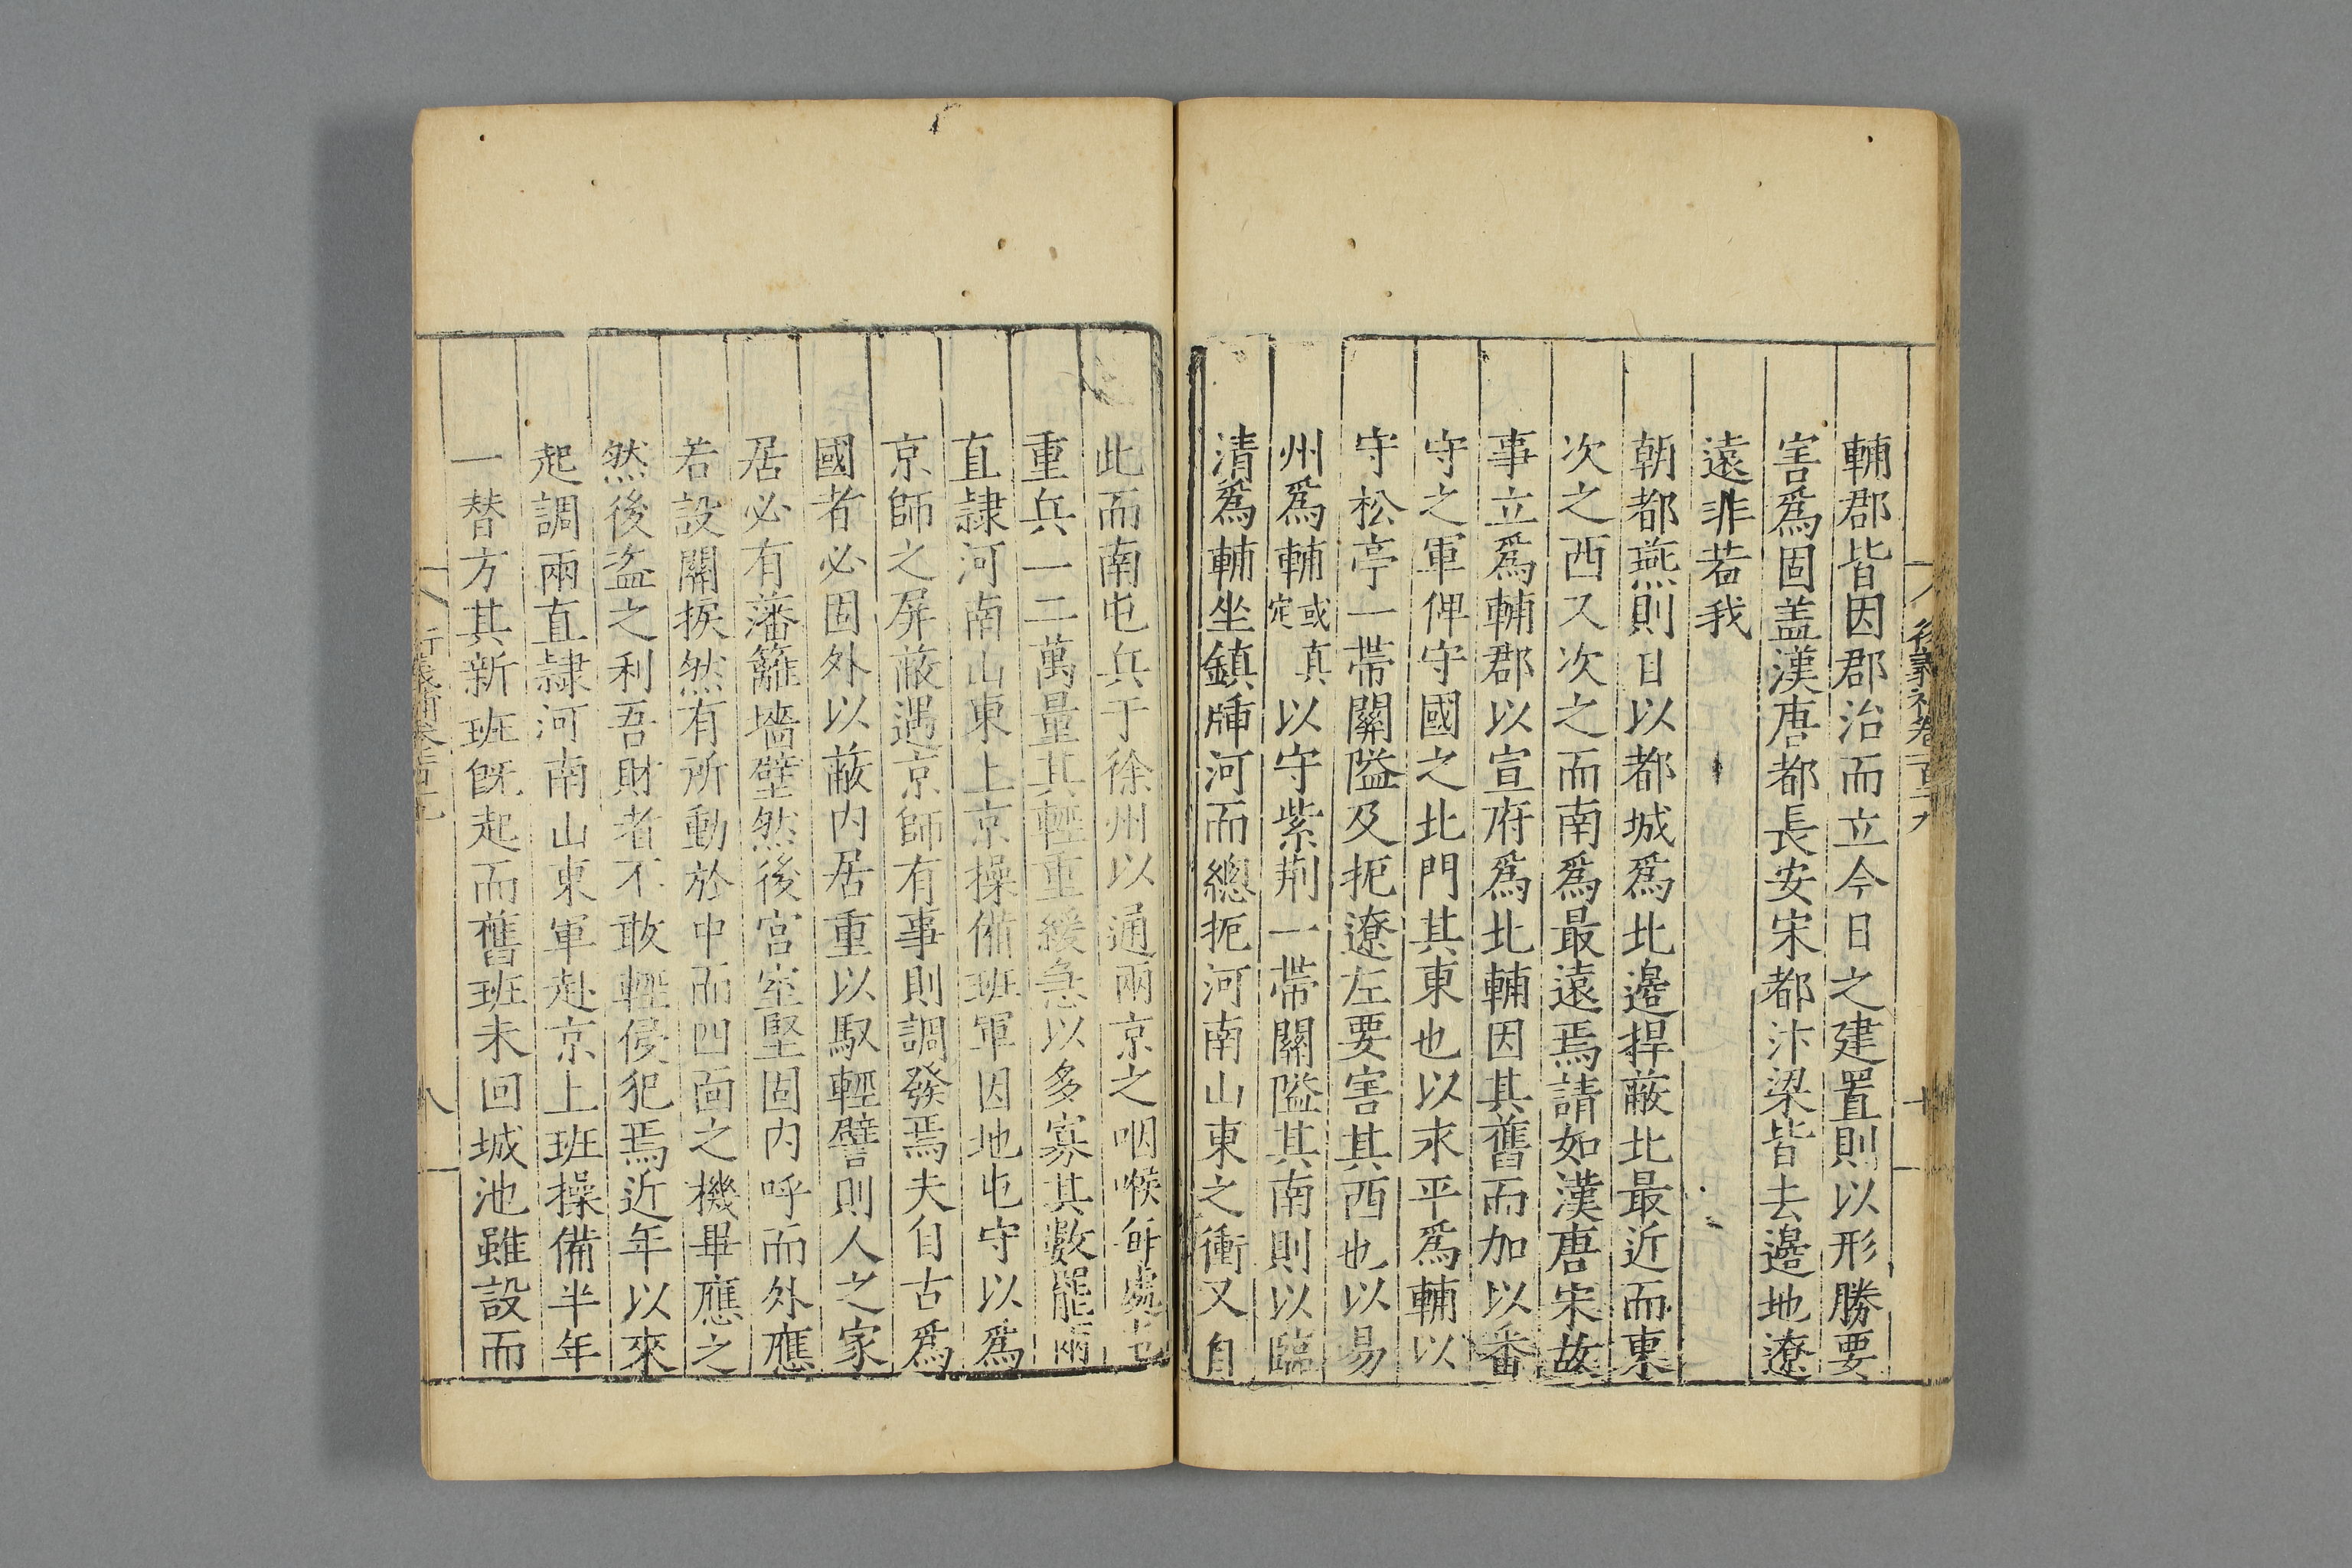 輔郡皆因郡治而立今日之建置則以形勝要
害爲固盖漢唐都長安宋都汴梁皆去邉地遼
遠非若我
朝都燕則自以都城爲北邉捍蔽北最近而東
次之西又次之而南爲最遠焉請如漢唐宋故
事立爲輔郡以宣府爲北輔因其舊而加以番
守之軍俾守國之北門其東也以永平爲輔以
守松亭一帶關隘及扼遼左要害其西也以易
州爲輔或真定以守紫荆一帶關隘其南則以臨
清爲輔坐鎮牐河而總扼河南山東之衝又自
此而南屯兵于徐州以通兩京之咽喉每處屯
重兵一二萬量其輕重緩急以多寡其數罷兩
直隷河南山東上京操備班軍因地屯守以爲
京師之屏蔽遇京師有事則調發焉夫自古爲
國者必固外以蔽内居重以馭輕譬則人之家
居必有藩籬墻壁然後宫室堅固内呼而外應
若設關捩然有所動於中而四面之機畢應之
然後盗之利吾財者不敢輕侵犯焉近年以來
起調兩直隷河南山東軍赴京上班操備半年
一替方其新班旣起而舊班未回城池雖設而